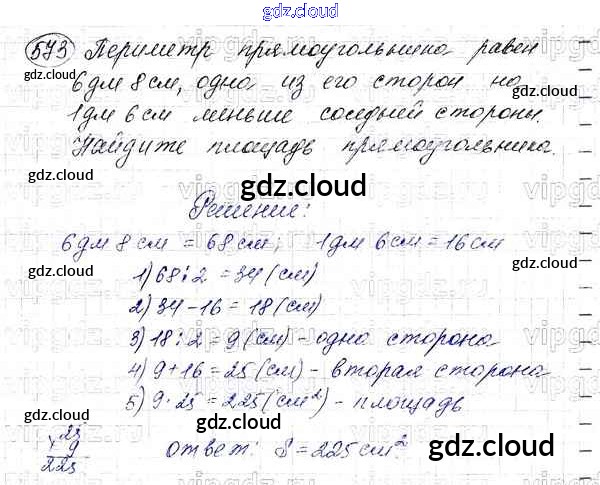 gdz.cloud
573 Периметр прямоугольника равен
gdz.cloud
6 дм 8 см, одна из его сторон на
gdz.cloud
1 дм 6 см меньше соседней стороны.
Найдите площадь прямоугольника.
gdz.cloud
gdz.cloud
gdz.cloud
Решение:
6 дм 8 см = 68 см; 1 дм 6 см = 16 см
gdz.cloud
1) 68:2 = 34 (см)
2) 34-16 = 18 (см)
gdz.cloud
3) 18:2 = 9 (см) - одна сторона
4) 9+16 = 25 (см) - вторая сторона
gdz.cloud
5) 9·25 = 225 (см²) - площадь
gdz.cloud
25
× 9
225
ответ: S = 225 см²
gdz.cloud
gdz.cloud